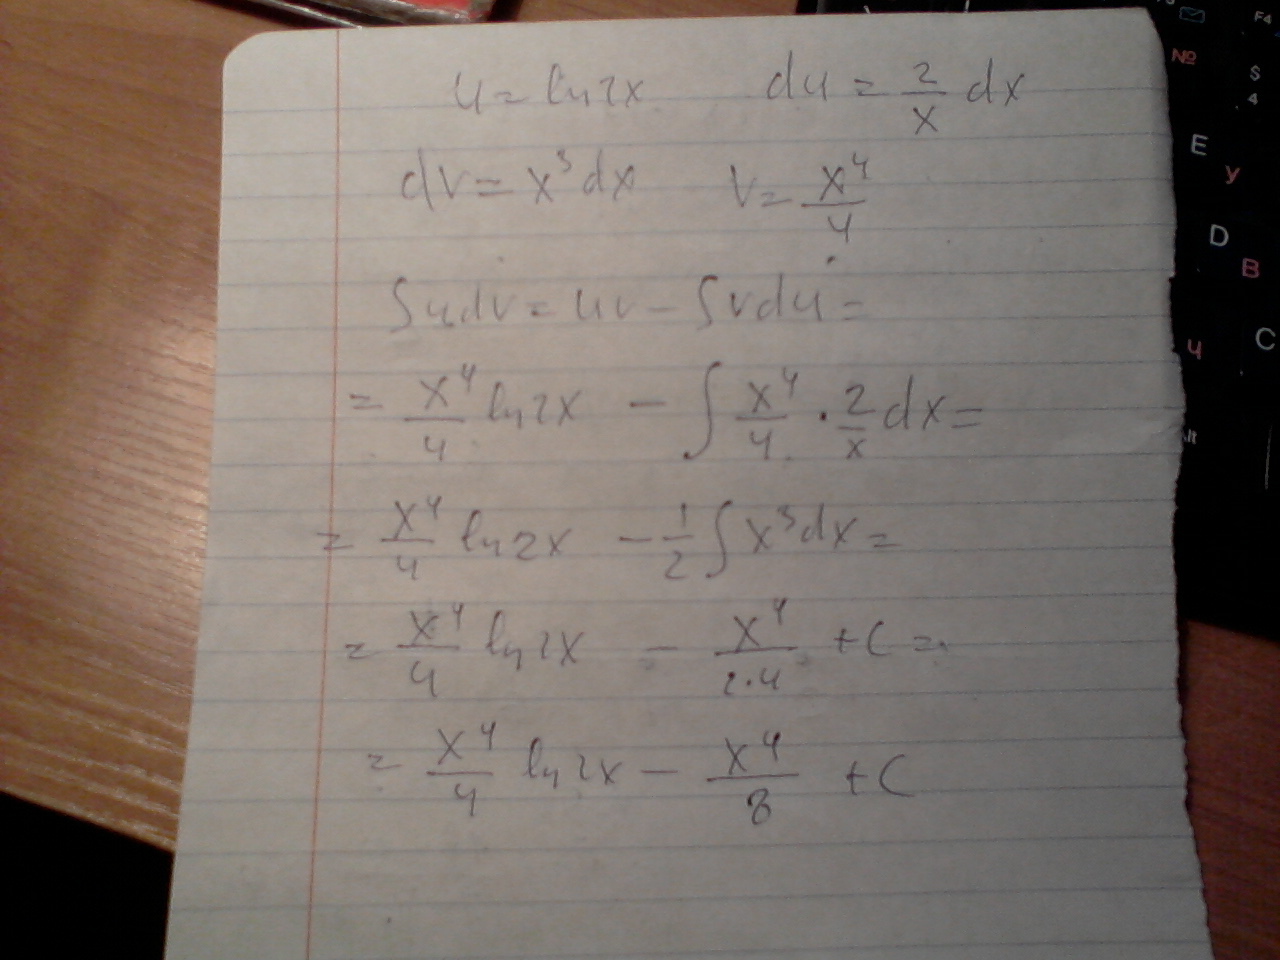 u = ln2x du = 2/x dx
dv = x³dx v = x⁴/4
∫udv = uv − ∫vdu =
= x⁴/4 ln2x − ∫ x⁴/4 · 2/x dx =
= x⁴/4 ln2x − 1/2 ∫ x³dx =
= x⁴/4 ln2x − x⁴/2·4 + C =
= x⁴/4 ln2x − x⁴/8 + C
F4
№
$
4
E
У
D
В
Ч
C